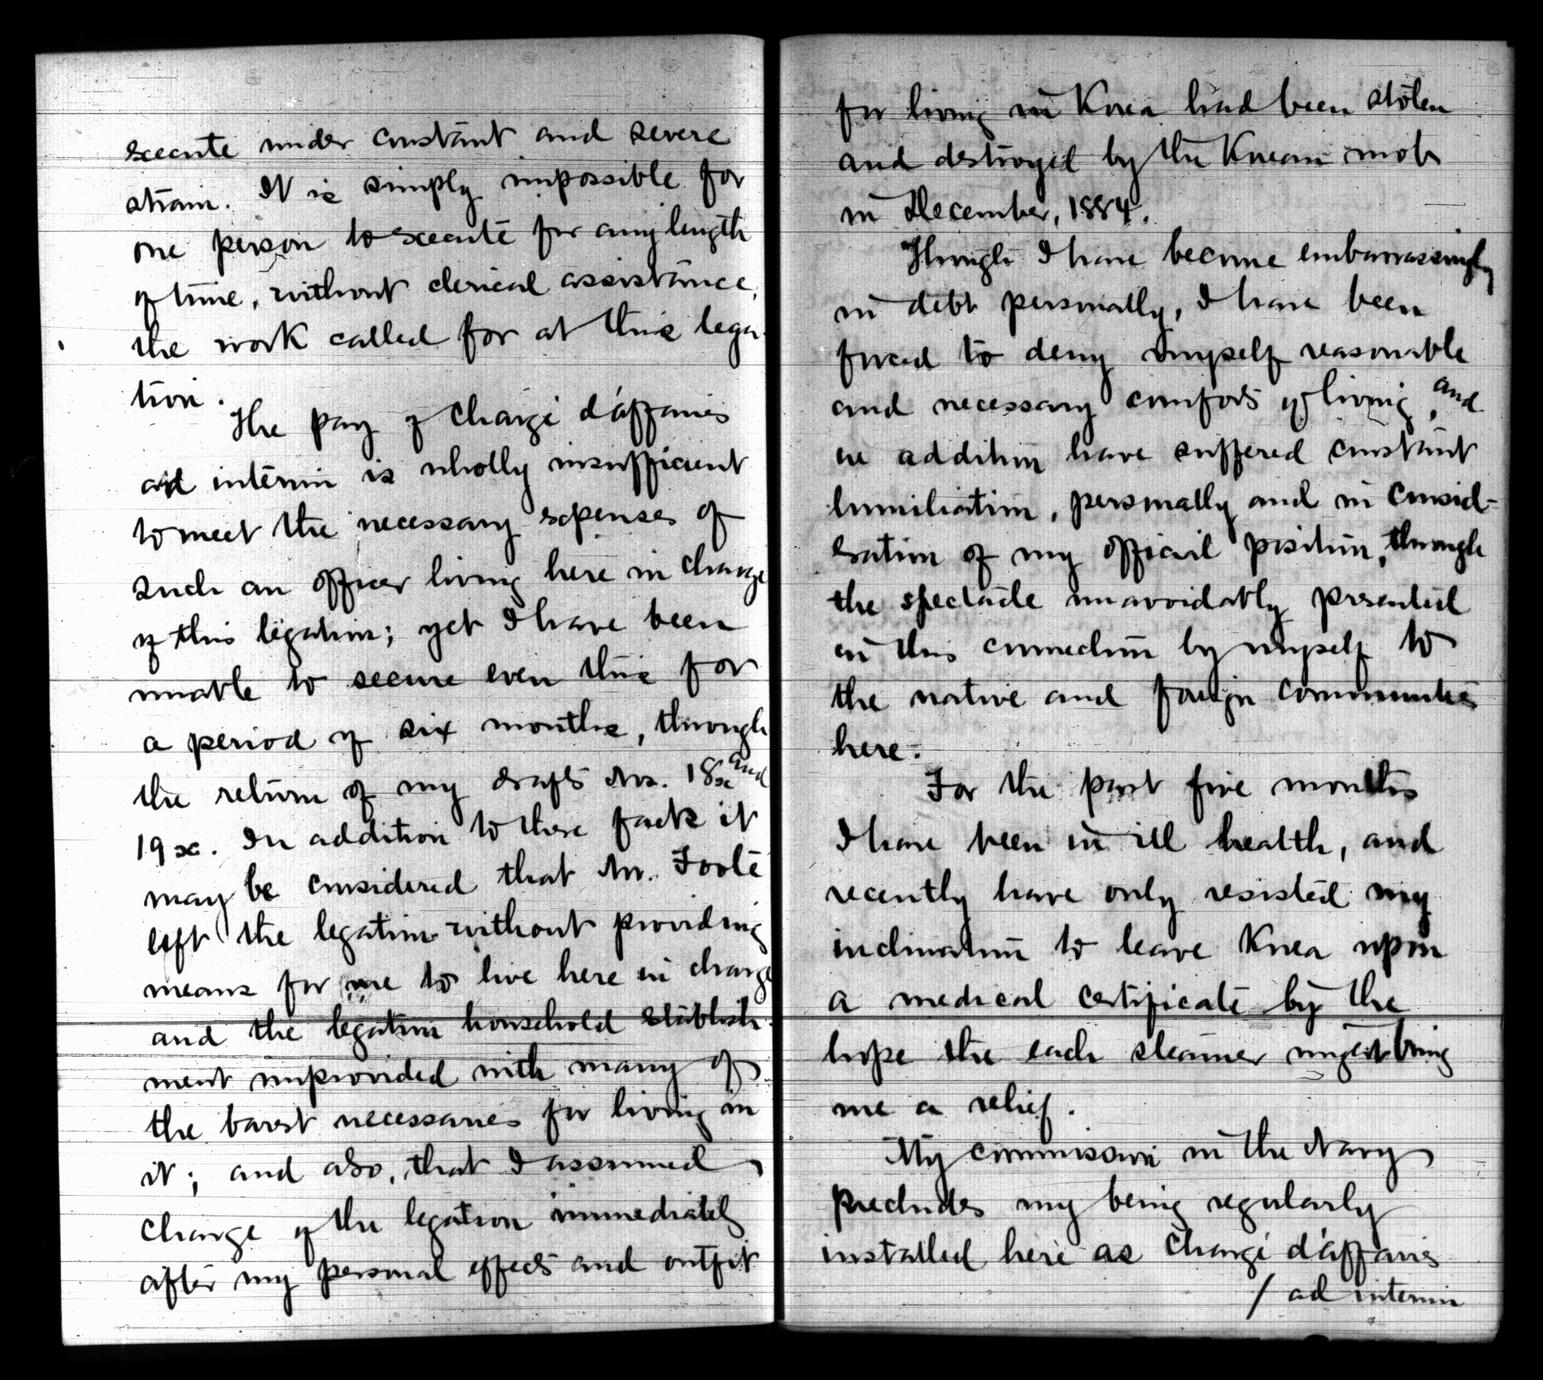 execute under constant and severe
strain. It is simply impossible for
one person to execute for any length
of time, without clerical assistance,
the work called for at this lega-
tion.
The pay of Chargé d'affaires
ad interim is wholly insufficient
to meet the necessary expenses of
such an officer living here in charge
of this legation; yet I have been
unable to secure even this for
a period of six months, through
the return of my drafts Nos. 18 and
19
In addition to these facts it
may be considered that Mr. Foote
left the legation without providing
means for me to live here in charge
and the legation household establish-
ment unprovided with many of
the barest necessaries for living in
it; and also, that I assumed
charge of the legation immediately
after my personal effects and outfit
for living in Korea had been stolen
and destroyed by the Korean mob
in December, 1884.
Though I have become embarrassingly
in debt personally, I have been
forced to deny myself reasonable
and necessary comforts of living, and
in addition have suffered constant
humiliation, personally and in consid-
eration of my official position, through
the spectacle unavoidably presented
in this connection by myself to
the native and foreign communities
here.
For the past five months
I have been in ill health, and
recently have only resisted my
inclination to leave Korea upon
a medical certificate by the
hope the each steamer might bring
me a relief.
My commission in the Navy
precludes my being regularly
installed here as Chargé d'affaires
/ ad interim